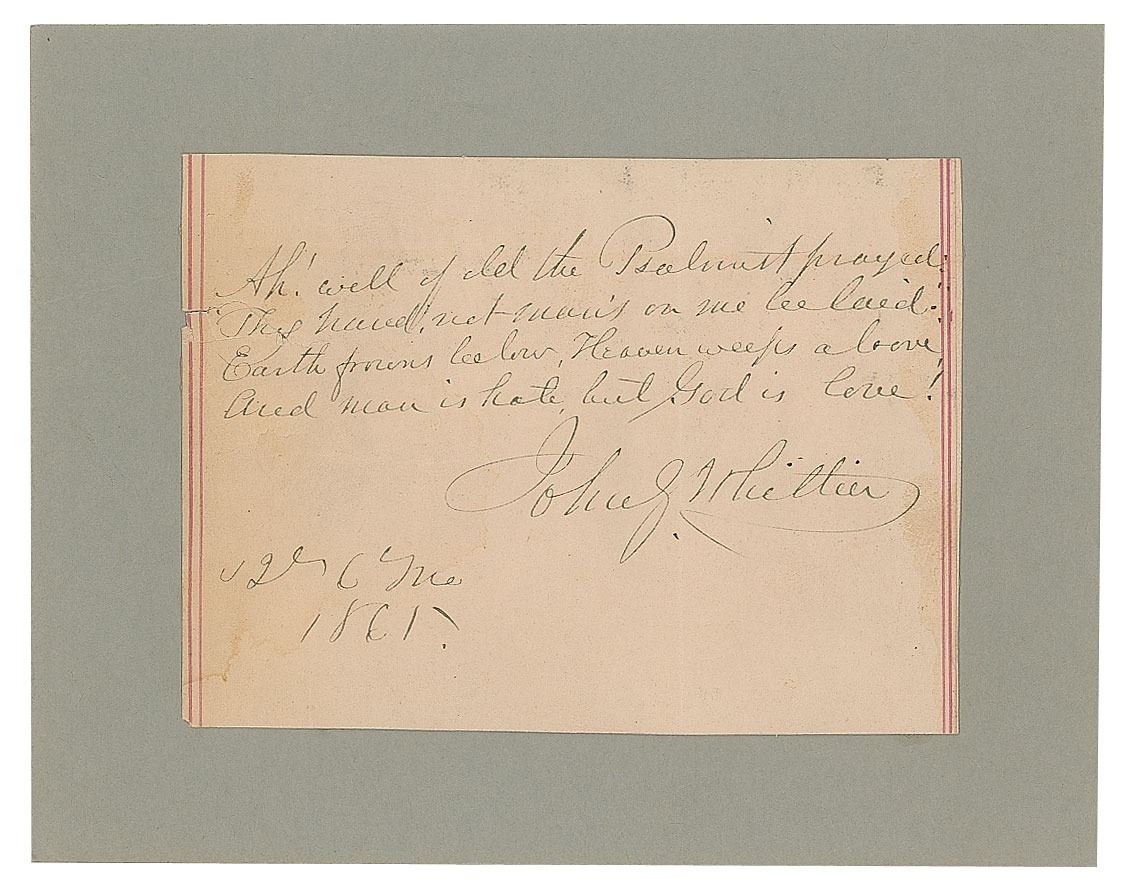 Ah! well of old the Psalmist prayed:
Thy hand, not man's on me be laid:
Earth frowns below, Heaven weeps above,
And man is hate, but God is love!
John G. Whittier
12th 6 mo
1861.